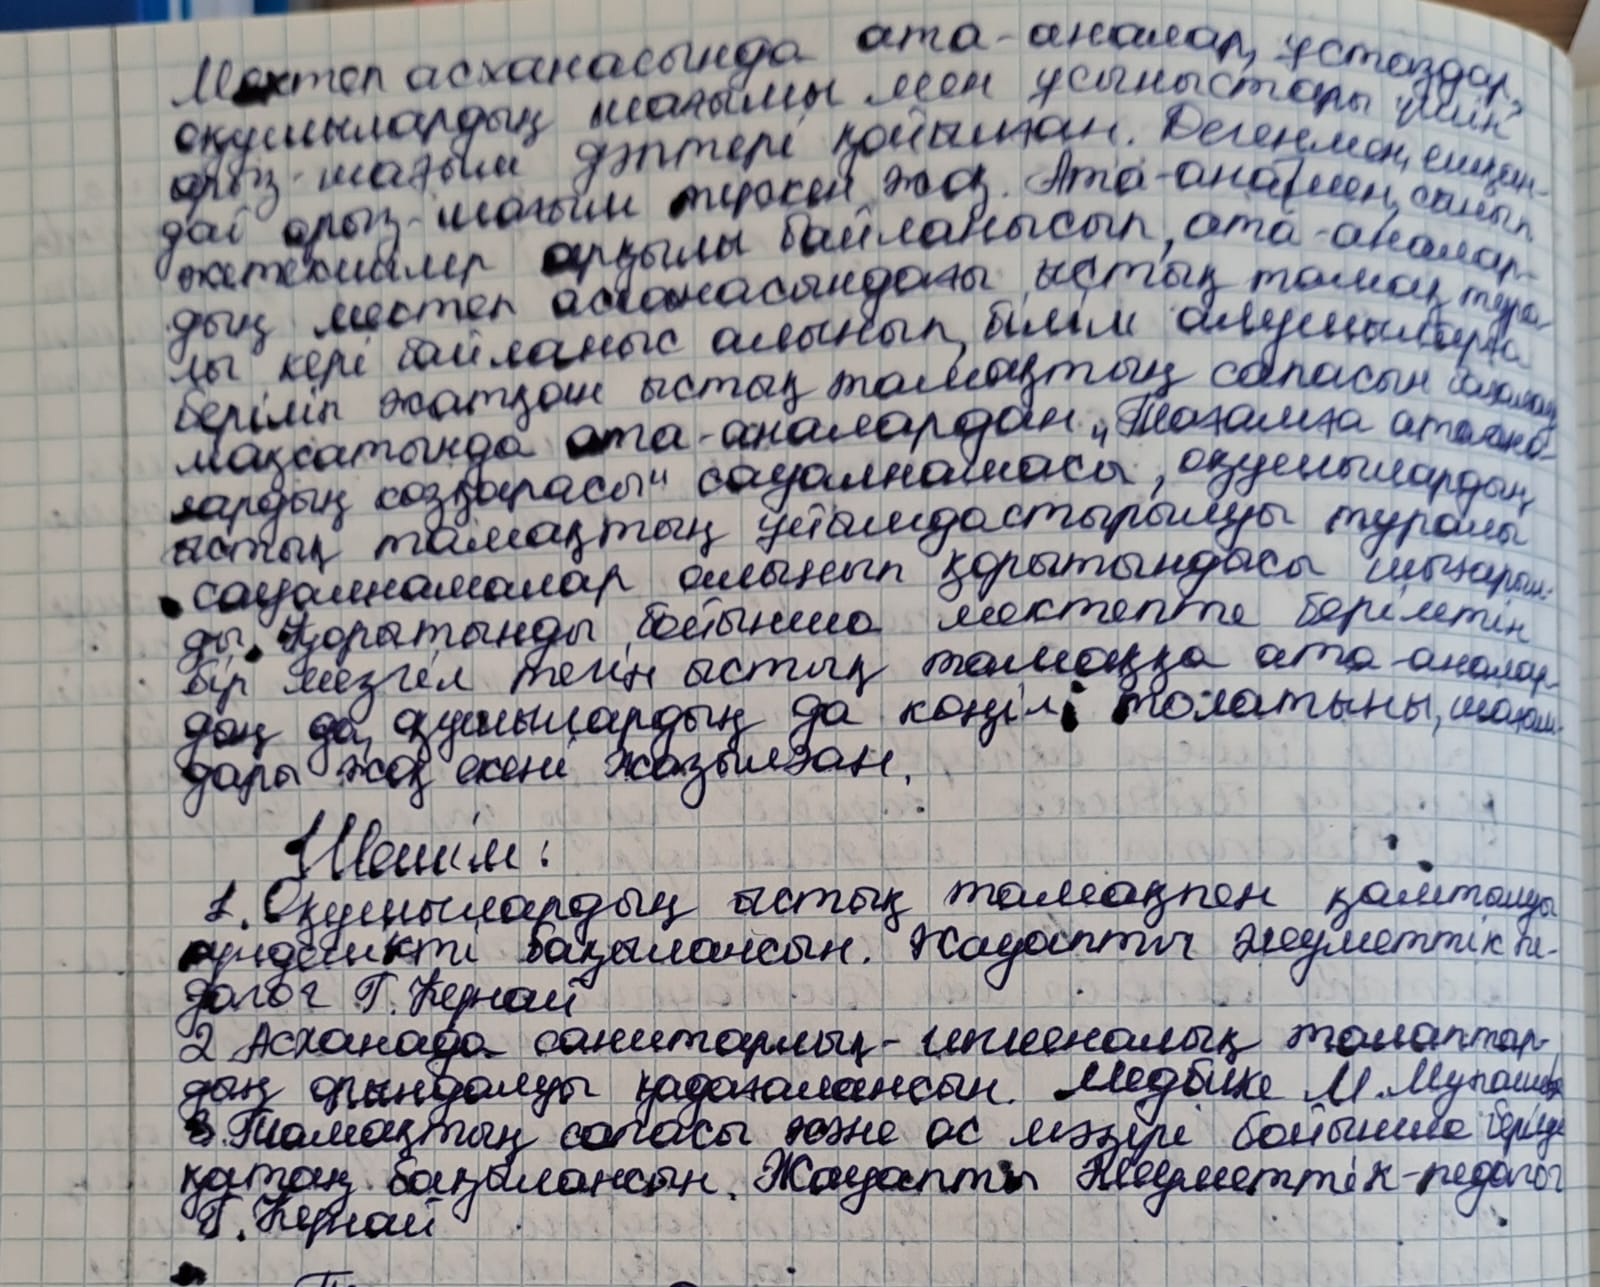 Мектеп асханасында ата-аналар, ұстаздар,
оқушылардың шағымы мен ұсыныстары үшін
арыз-шағым дәптері қойылған. Дегенмен, ешқан-
дай арыз-шағым түскен жоқ. Ата-анамен, сынып
жетекшілер арқылы байланысып, ата-аналар-
дың мектеп асханасындағы ыстық тамақ тура-
лы кері байланыс алынып, білім алушыларға
беріліп жатқан ыстық тамақтың сапасын бағалау
мақсатында ата-аналардан "Тағамға ата-ана-
лардың көзқарасы" сауалнамасы, оқушылардың
ыстық тамақтың ұйымдастырылуы туралы
сауалнамалар алынып қорытындысы шығарыл-
ды. Қорытынды бойынша мектепте берілетін
бір мезгіл тегін ыстық тамаққа ата-аналар-
дың да, оқушылардың да көңілі толатыны, шағым-
дары жоқ екені жазылған.
Шешім:
1. Оқушылардың ыстық тамақпен қамтылуы
күнделікті бақылансын. Жауапты әлеуметтік пе-
дагог Г. Керней
2 Асханада санитарлық-гигиеналық талаптар-
дың орындалуы қадағалансын. Медбике М.
3. Тамақтың сапасы және ас мәзірі бойынша берілуі
қатаң бақылансын. Жауапты әлеуметтік-педагог
Г. Керней